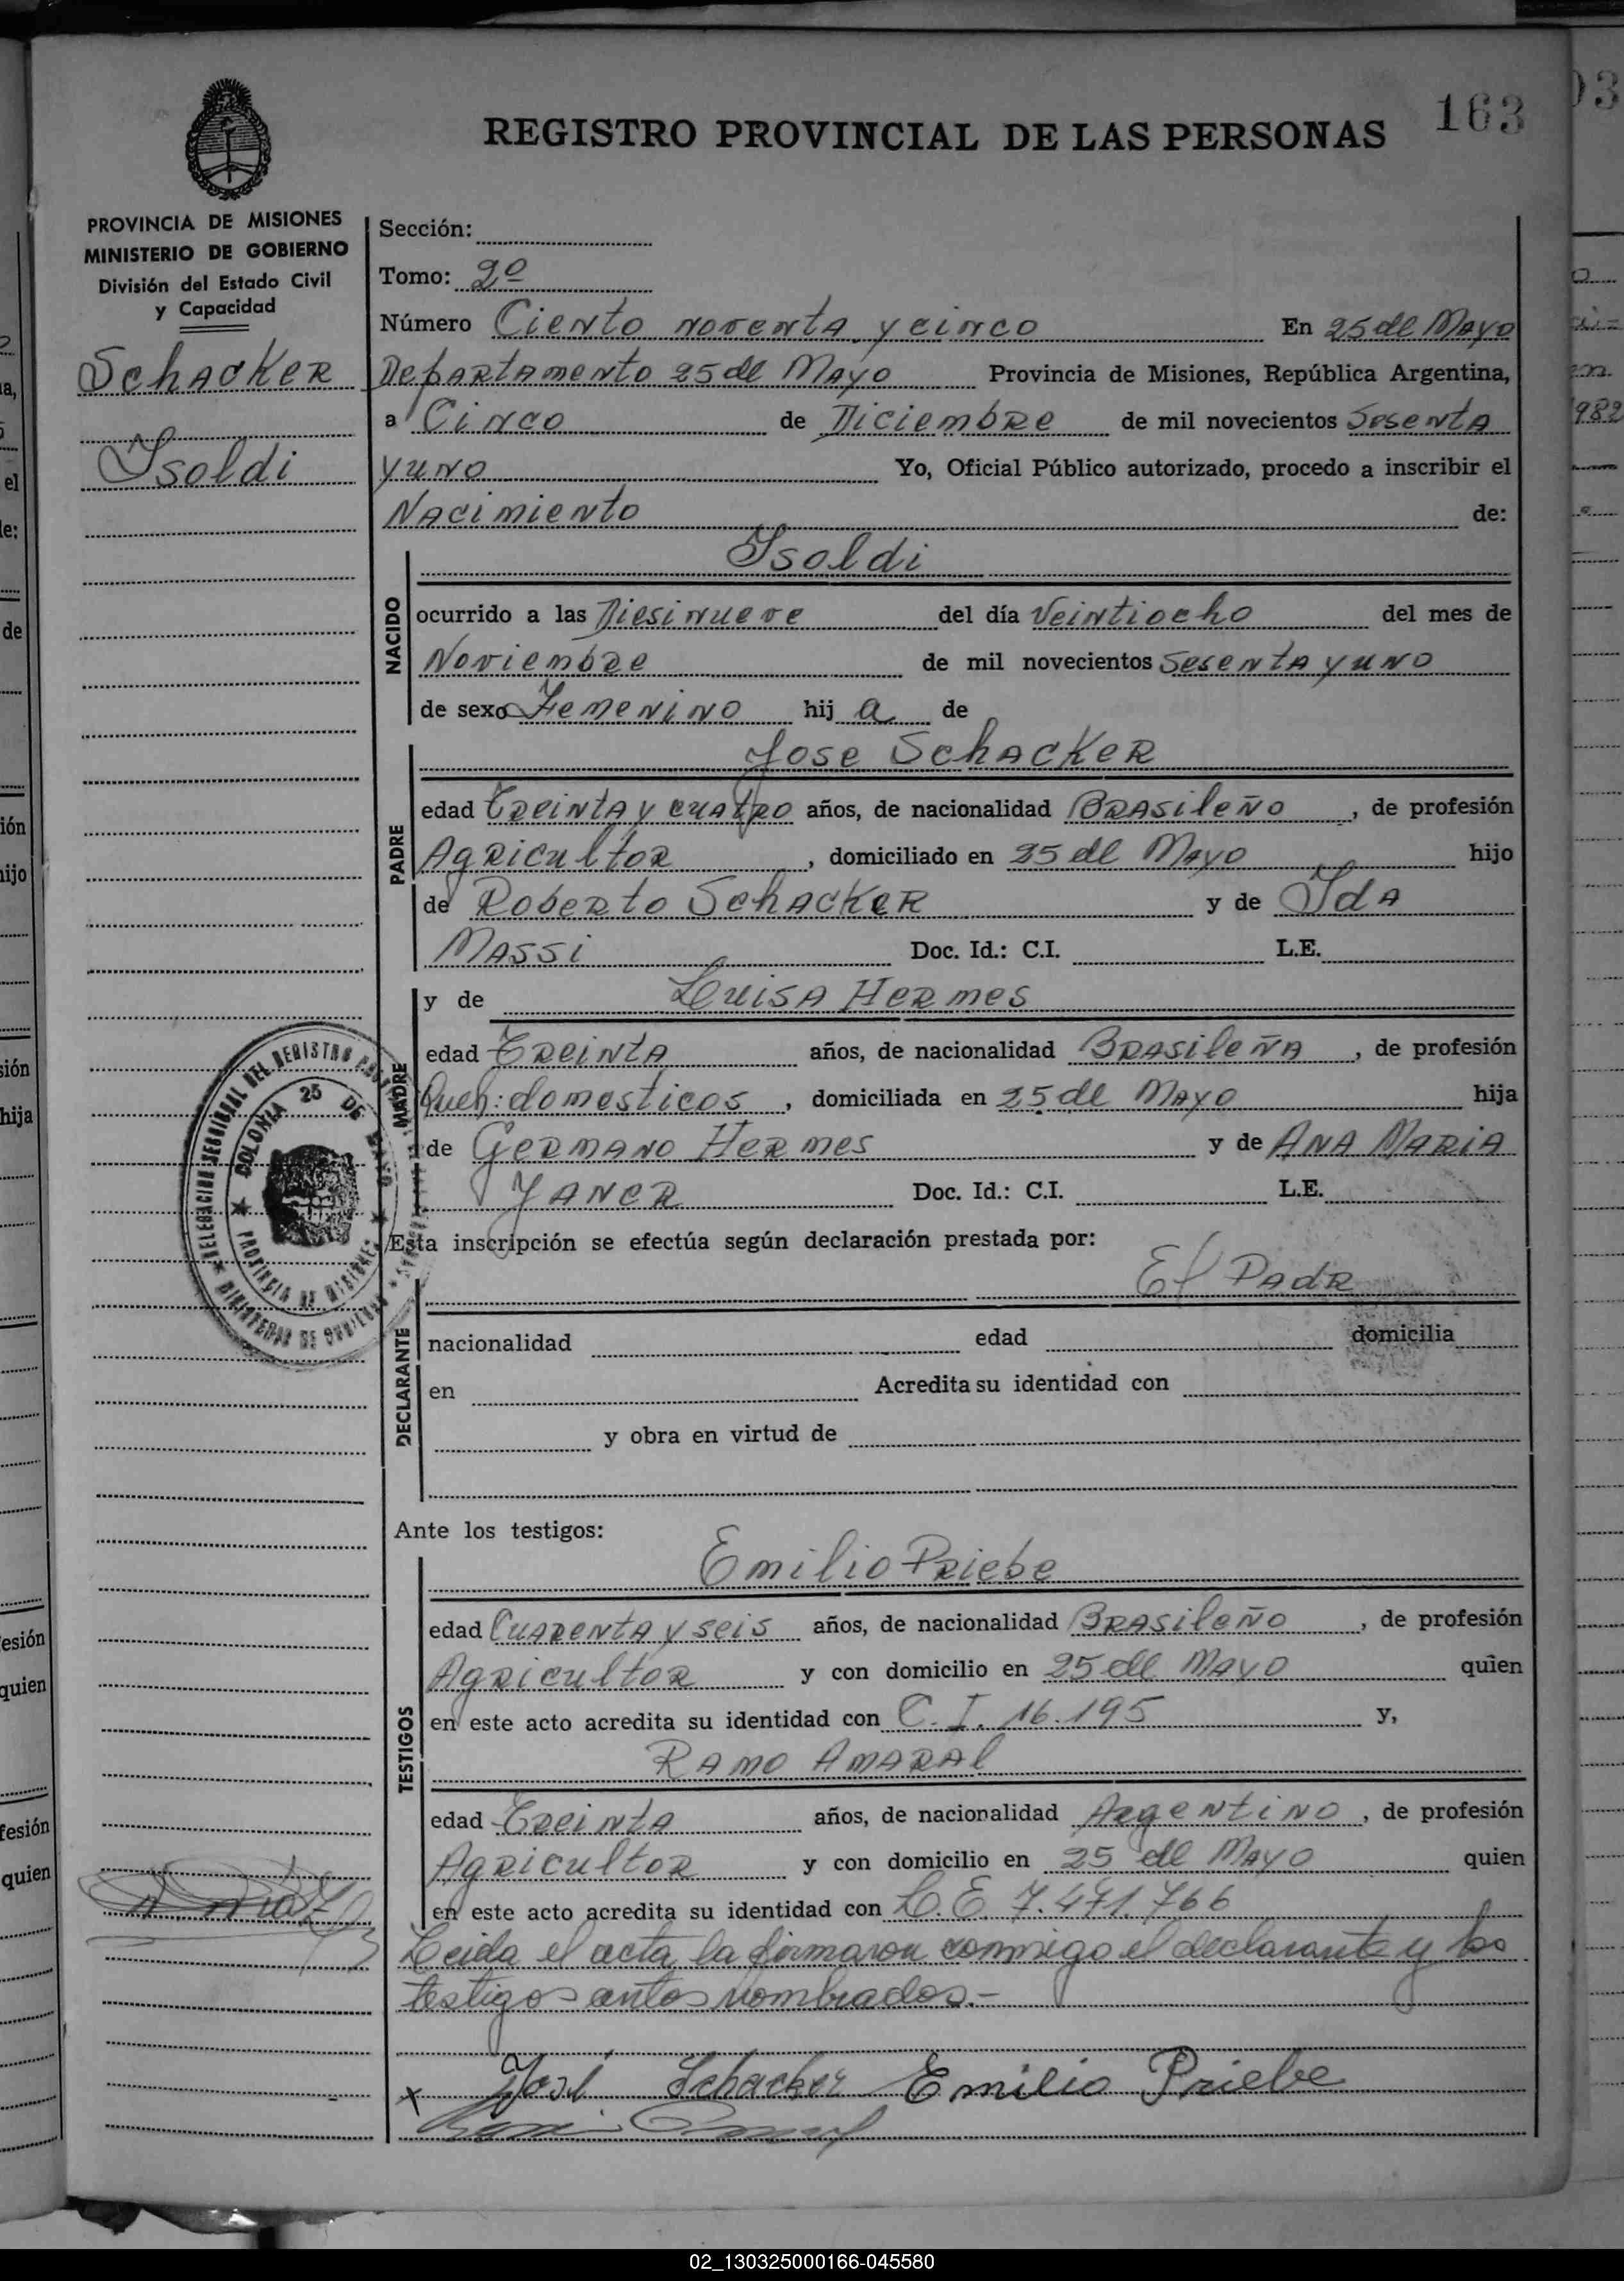 163
REGISTRO PROVINCIAL DE LAS PERSONAS
PROVINCIA DE MISIONES
MINISTERIO DE GOBIERNO
División del Estado Civil
y Capacidad
Schacker
Isoldi
Sección:
Tomo: 2º
Número Ciento noventa y cinco En 25 de Mayo
Departamento 25 de Mayo Provincia de Misiones, República Argentina,
a Cinco de Diciembre de mil novecientos Sesenta
y uno Yo, Oficial Público autorizado, procedo a inscribir el
Nacimiento de:
Isoldi
NACIDO
ocurrido a las Diesinueve del día Veintiocho del mes de
Noviembre de mil novecientos Sesenta y uno
de sexo Femenino hij a de
Jose Schacker
PADRE
edad Treinta y cuatro años, de nacionalidad Brasileño, de profesión
Agricultor, domiciliado en 25 de Mayo hijo
de Roberto Schacker y de Ida
Massi Doc. Id.: C.I. L.E.
y de Luisa Hermes
MADRE
edad Treinta años, de nacionalidad Brasileña, de profesión
Queh: domesticos, domiciliada en 25 de Mayo hija
de Germano Hermes y de Ana Maria
Janer Doc. Id.: C.I. L.E.
Esta inscripción se efectúa según declaración prestada por:
El Padr
DECLARANTE
nacionalidad edad domicilia
en Acredita su identidad con
y obra en virtud de
Ante los testigos:
Emilio Priebe
TESTIGOS
edad Cuarenta y seis años, de nacionalidad Brasileño, de profesión
Agricultor y con domicilio en 25 de Mayo quien
en este acto acredita su identidad con C.I. 16.195 y,
Ramo Amaral
edad Treinta años, de nacionalidad Argentino, de profesión
Agricultor y con domicilio en 25 de Mayo quien
en este acto acredita su identidad con L.E. 7.471.766
Leida el acta, la firmaron conmigo el declarante y los
testigos antes nombrados.-
x José Schacker Emilio Priebe
COLONIA 25 DE
PROVINCIA DE MISIONES
02_130325000166-045580